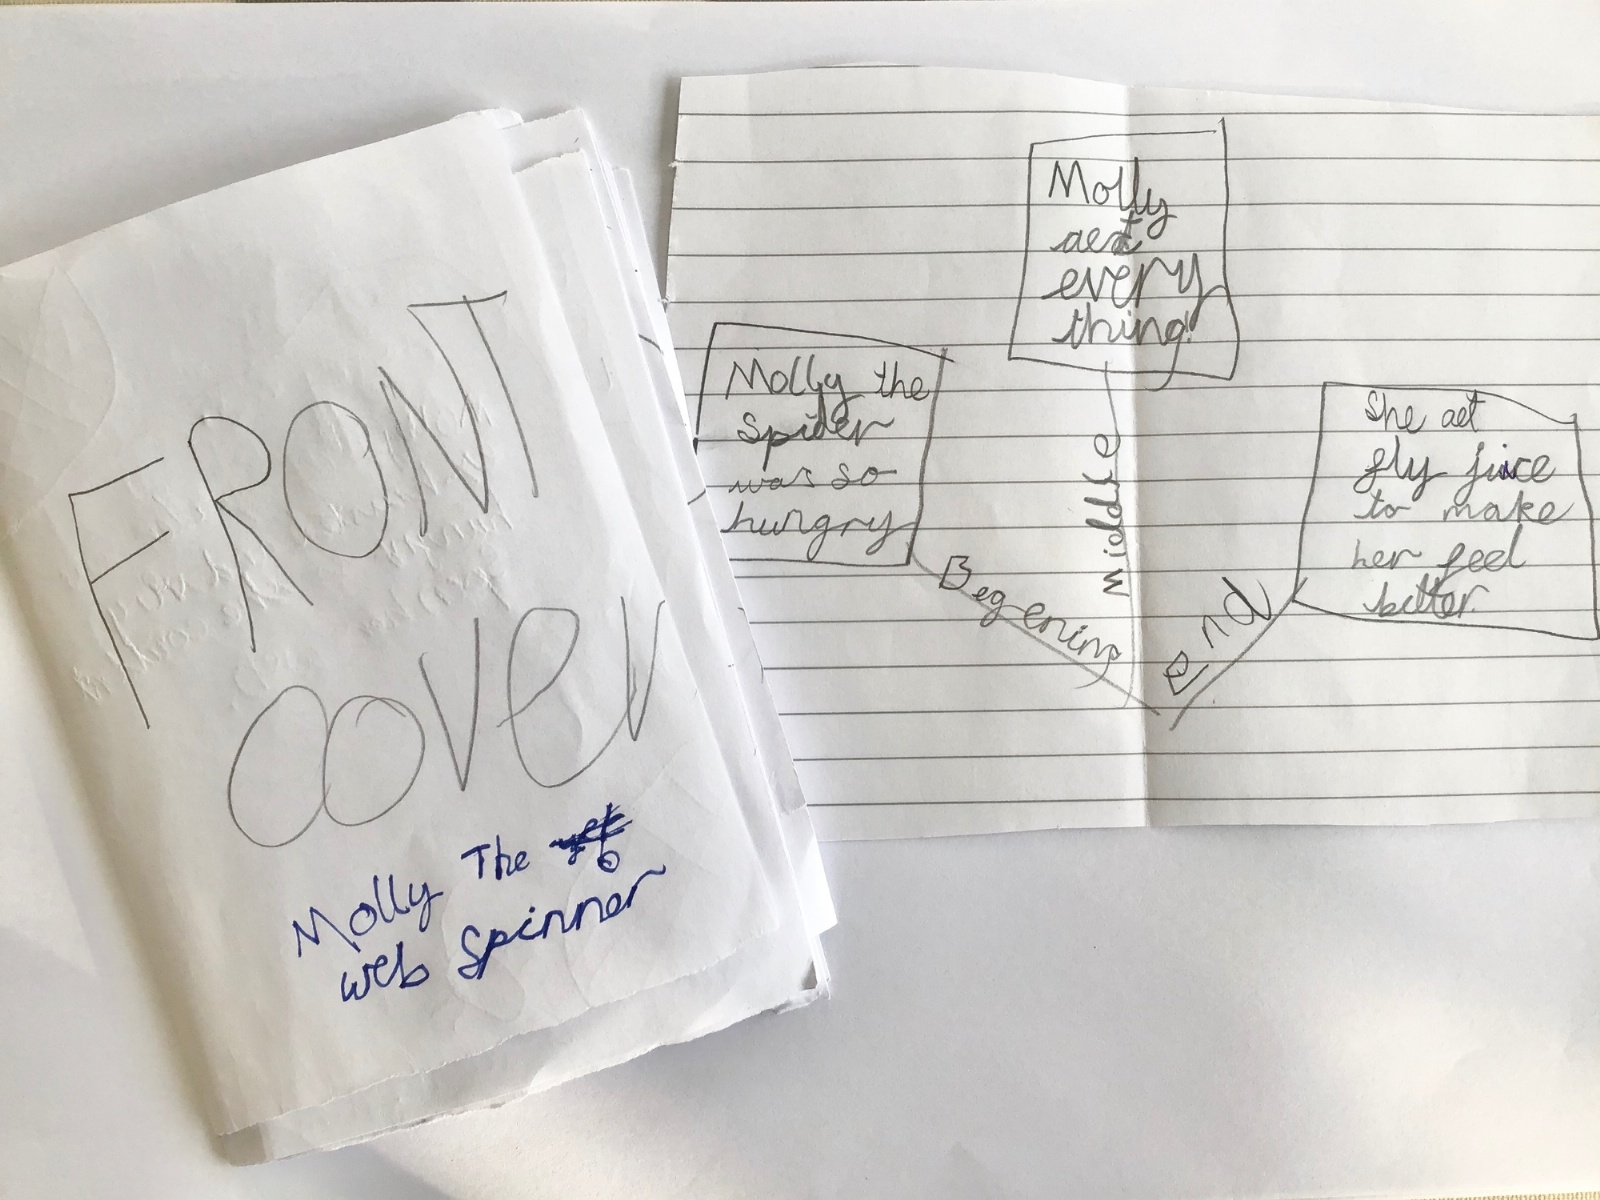 FRONT
cover
Molly The
web Spinner
Molly the
Spider
was so
hungry
Begening
Molly
aet
every
thing!
middle
She aet
fly juice
to make
her feel
better.
end